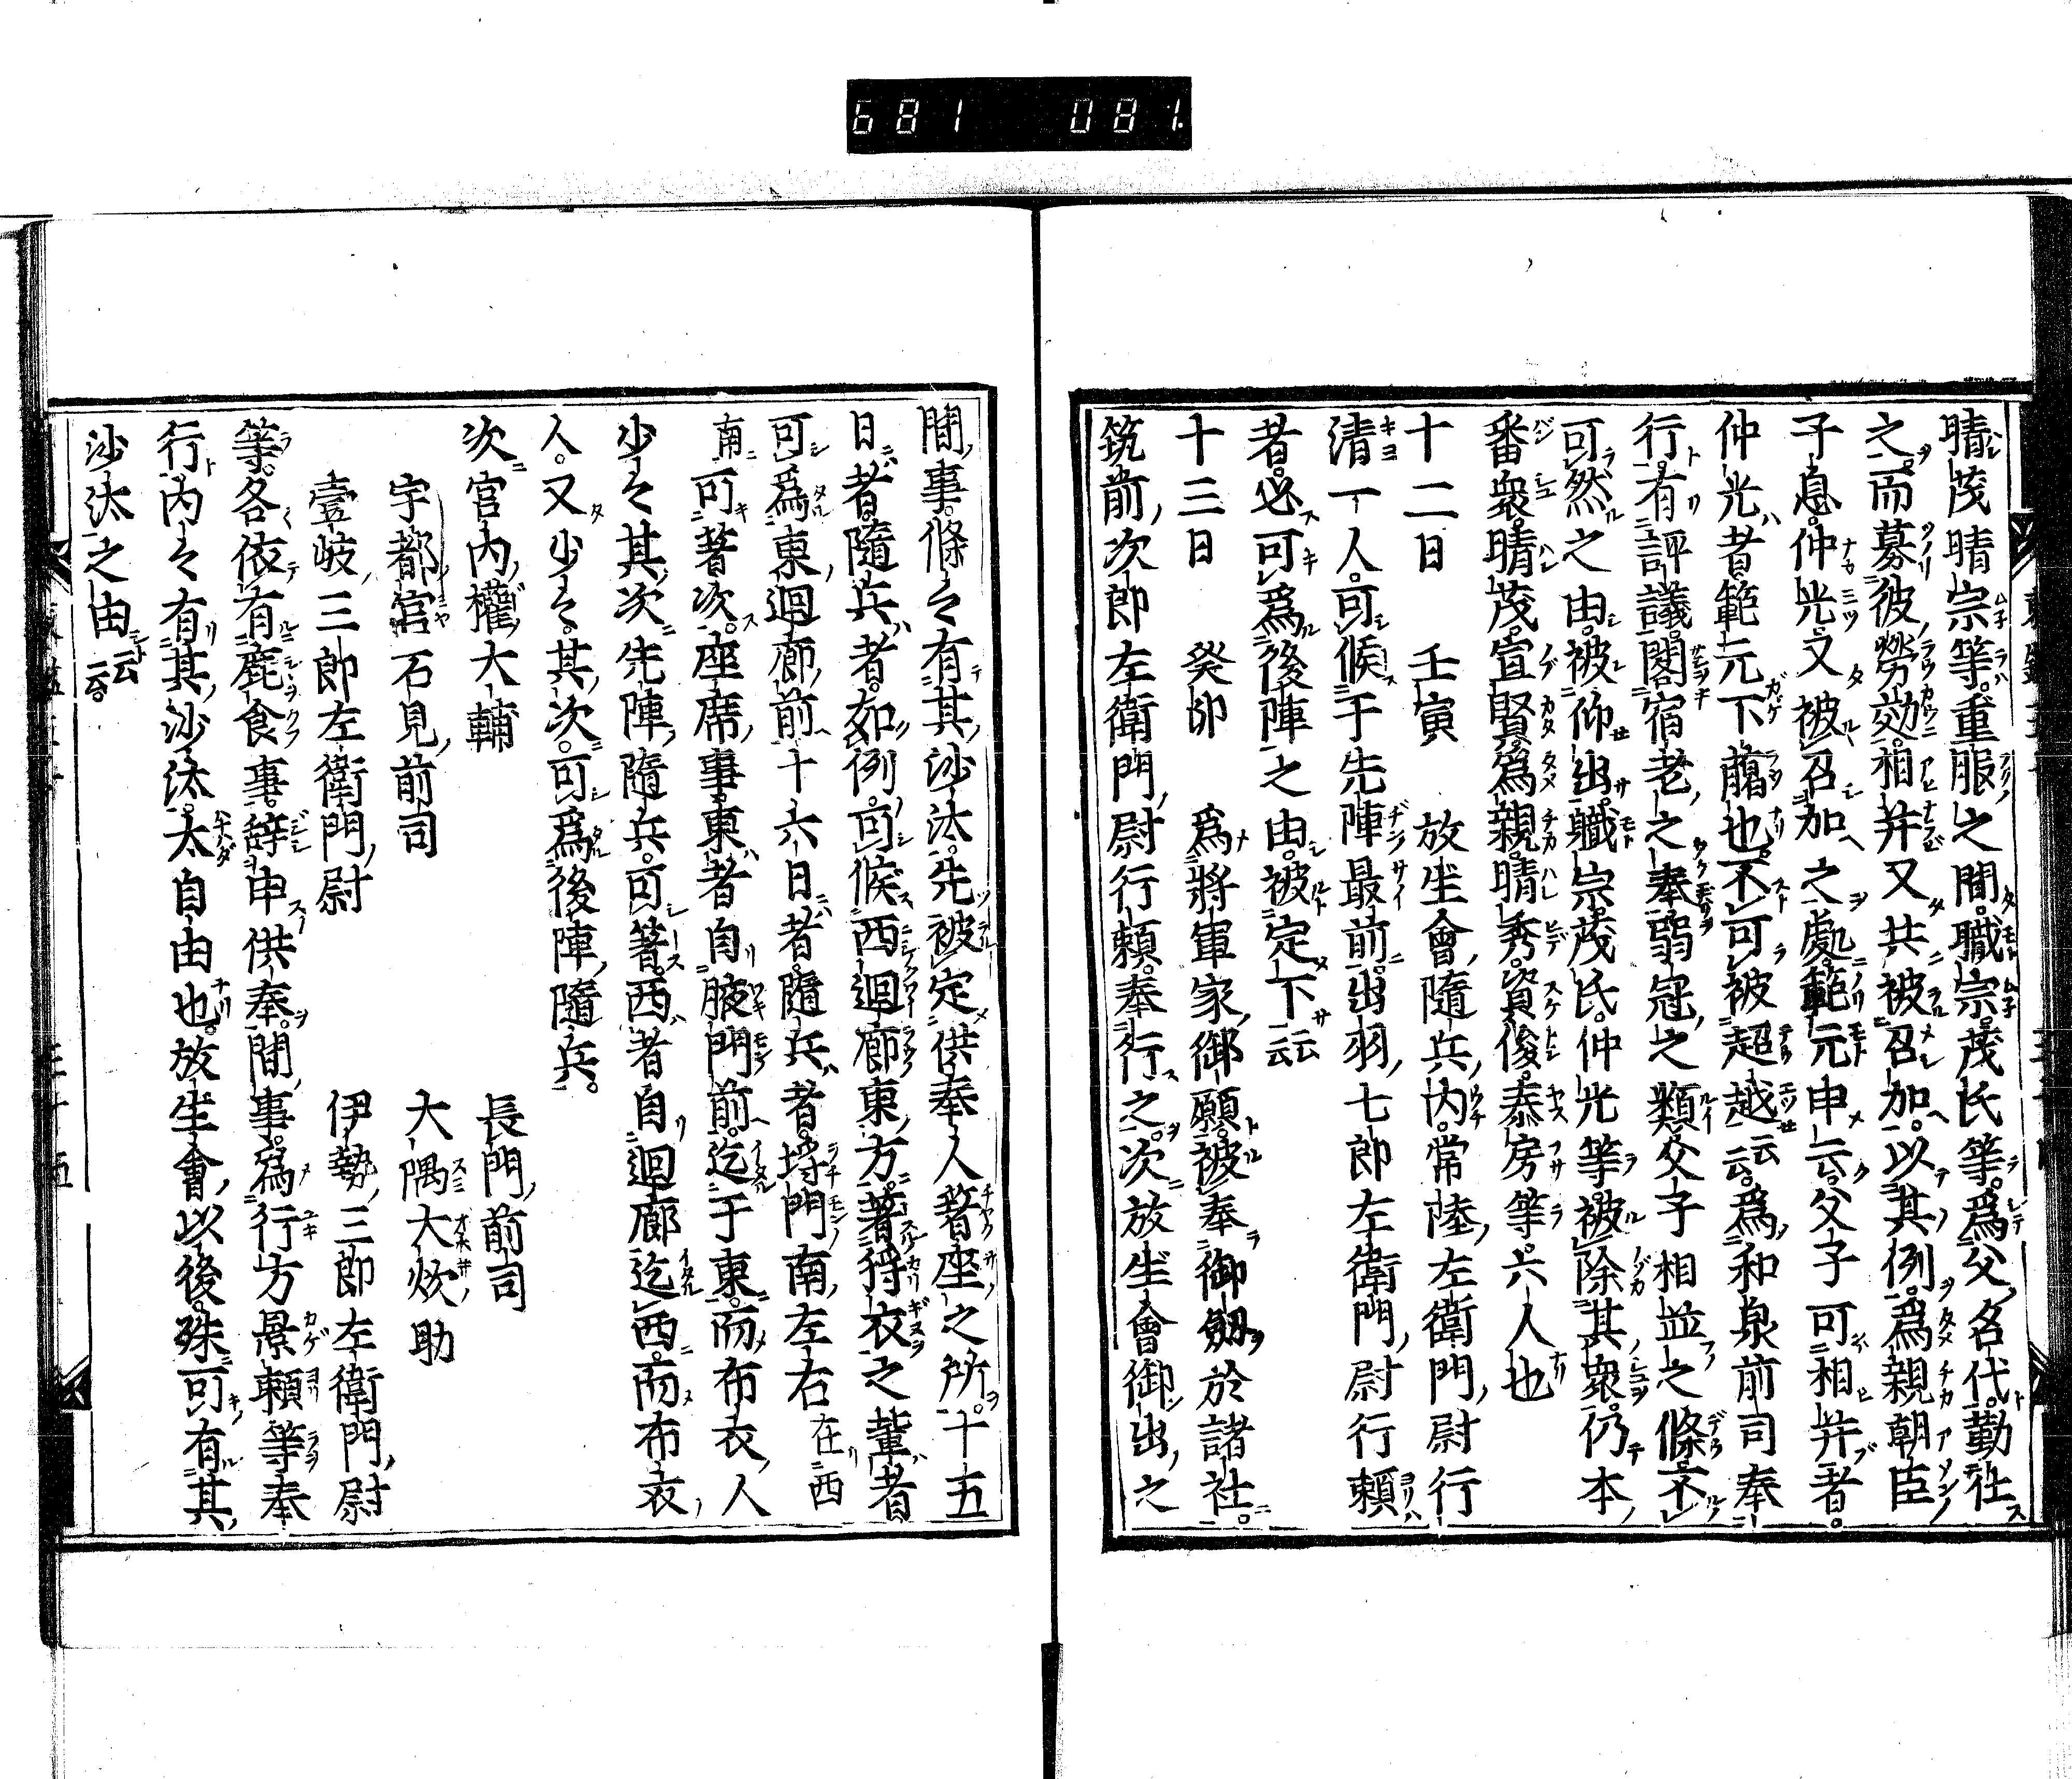 681 081.
晴茂晴宗等重服之間。職宗茂氏等。爲父名代。勤仕
之。而募彼勞効。相并又共被召加。以其例。爲親朝臣
子息。仲光又被召加之處。範元申云。父子可相并者。
仲光者。範元下﨟也。不可被超越云云。爲和泉前司奉
行。有評議。閣宿老之奉。弱冠之類父子相並之條。不
可然之由。被仰出。職宗。茂氏。仲光等。被除其衆。仍本
番衆。晴茂。宣賢。爲親。晴秀。資俊。泰房等。六人也
十二日　壬寅　放生會隨兵内。常陸左衛門尉行
清一人。可候于先陣最前。出羽七郎左衛門尉行頼
者。必可爲後陣之由。被定下云云
十三日　癸卯　爲將軍家御願。被奉御劔於諸社。
筑前次郎左衛門尉行頼。奉行之。次放生會御出之
間事。條々有其沙汰。先被定供奉人著座之所。十五
日者。隨兵者。如例。可候西迴廊東方。著狩衣之輩者
可爲東迴廊前。十六日者。隨兵者。埒門南左右在西
南可著次。座席事。東者自腋門前。迄于東。而布衣人
少々其次先陣隨兵。可著。西者自迴廊迄西。而布衣
人。又少々。其次。可爲後陣隨兵。
次宮内權大輔　長門前司
宇都宮石見前司　大隅大炊助
壹岐三郎左衛門尉　伊勢三郎左衛門尉
等。各依有鹿食事。辞申供奉。間事。爲行方景頼等奉
行。内々有其沙汰。太自由也。放生會以後。殊可有其
沙汰之由云云。